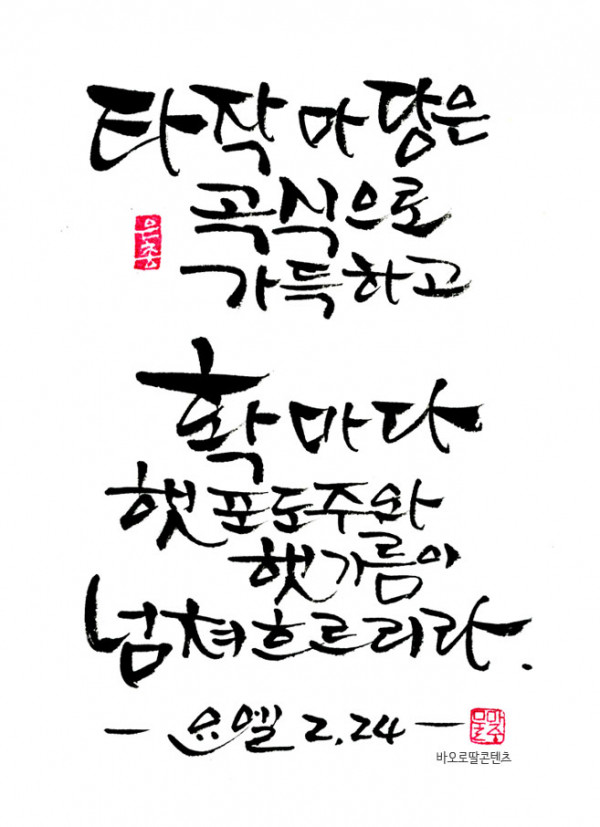 타작 마당은
곡식으로
은총
가득하고
확마다
햇포도주와
햇기름이
넘쳐흐르리라.
- 요엘 2,24 -
바오로딸콘텐츠